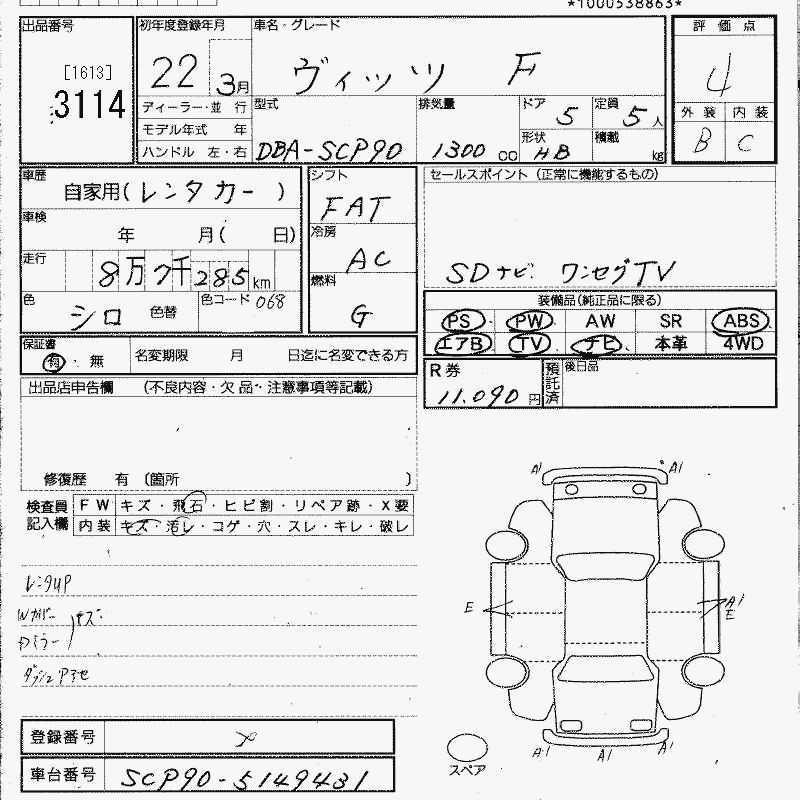 *1000538863*
出品番号
[1613]
3114
初年度登録年月
22 3月
車名・グレード
ヴィッツ F
評価点
4
外装 内装
B C
ディーラー・並行
モデル年式 年
ハンドル 左・右
型式
DBA-SCP90
排気量
1300 cc
ドア 5
定員 5人
形状 HB
積載 kg
車歴
自家用(レンタカー)
車検
年 月( 日)
走行
8万7千285km
色
シロ 色替
色コード 068
シフト
FAT
冷房
AC
燃料
G
セールスポイント (正常に機能するもの)
SDナビ ワンセグTV
装備品(純正品に限る)
PS PW AW SR ABS
エアB TV ナビ 本革 4WD
保証書
有・無
名変期限 月 日迄に名変できる方
R券
11,090円
預託済
後日品
出品店申告欄 (不良内容・欠品・注意事項等記載)
修復歴 有 (箇所 )
検査員記入欄
FW キズ・飛石・ヒビ割・リペア跡・X要
内装 キズ・汚レ・コゲ・穴・スレ・キレ・破レ
レンタUP
Wカバー
Dミラー キズ
ダッシュアセ
A1 A1
E A1
E
A1 A1 A1
スペア
登録番号
車台番号 SCP90-5149431